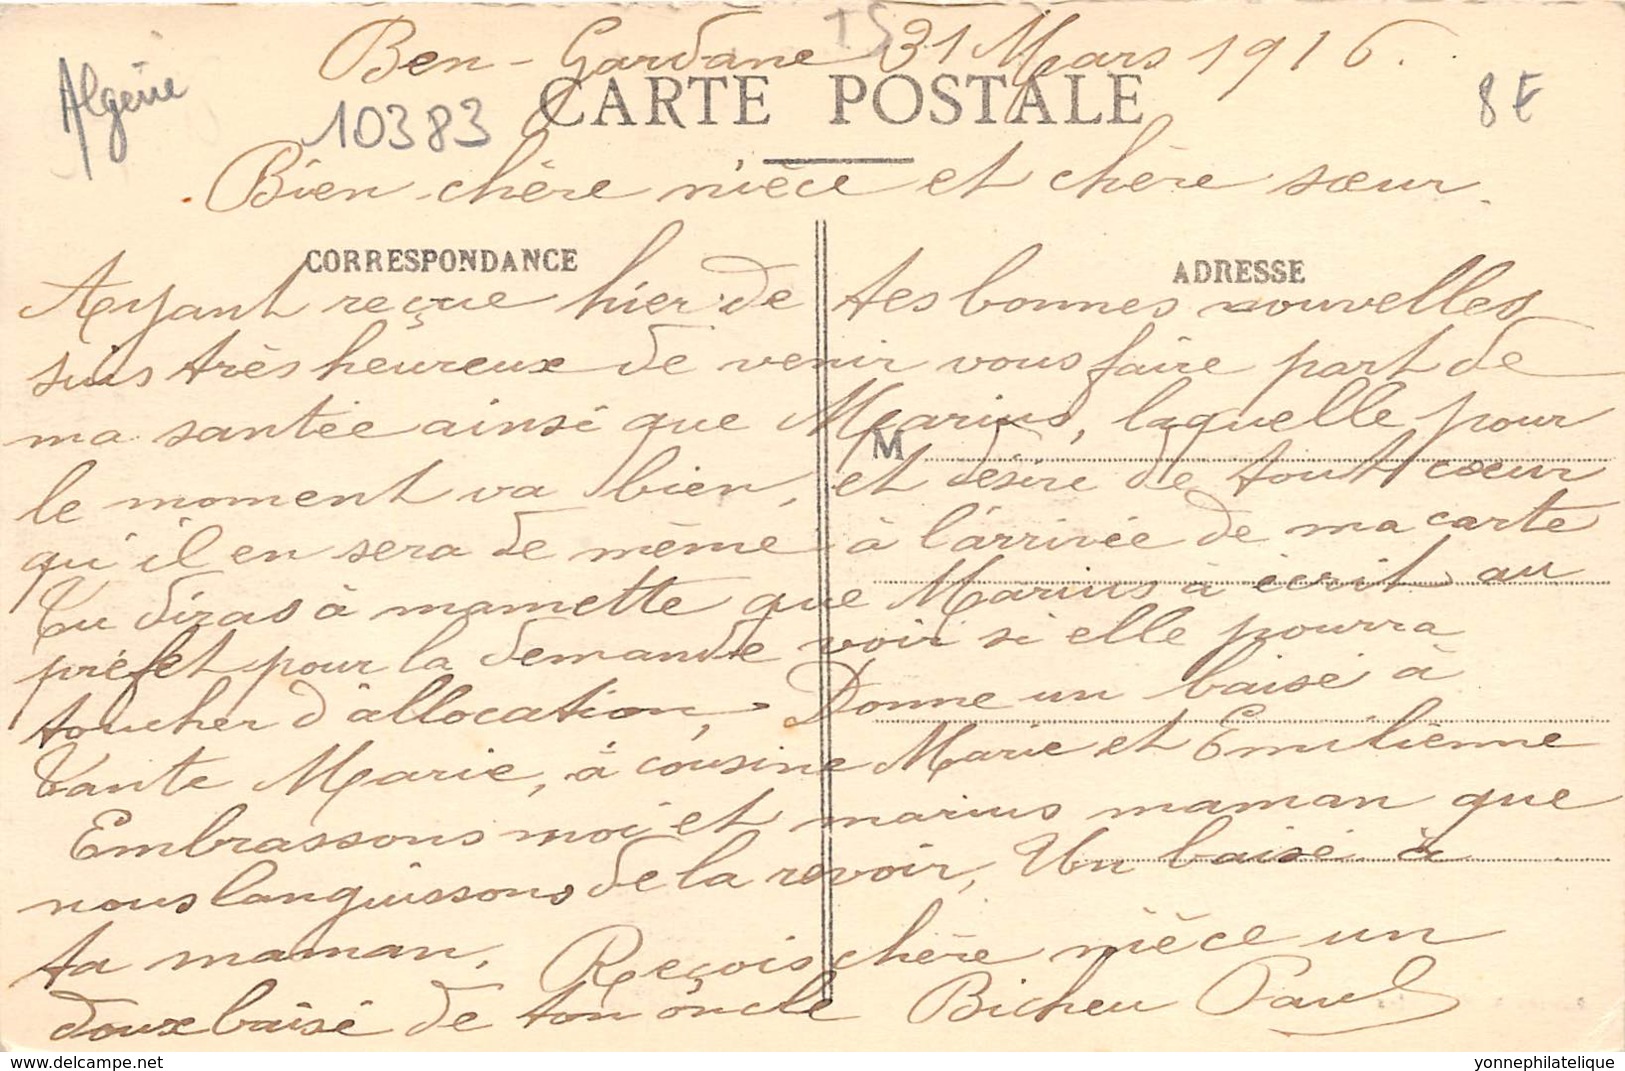 Ben-Gardane 31 Mars 1916.
Algérie
10383
8 €
CARTE POSTALE
Bien chère nièce et chère sœur.
CORRESPONDANCE
ADRESSE
Ayant reçue hier de tes bonnes nouvelles
suis très heureux de venir vous faire part de
ma santée ainsi que Marius, laquelle pour
M
le moment va bien, et désire de tout cœur
qu'il en sera de même à l'arrivée de ma carte
Tu diras à mamette que Marius à écrit au
préfet pour la demande voir si elle pourra
toucher d'allocation, Donne un baisé à
Tante Marie, à cousine Marie et Emilienne
Embrassons moi et marius maman que
nous languissons de la revoir, Un baisé à
ta maman, Reçois chère nièce un
doux baisé de ton oncle Bicheu Paul
delcampe.net
yonnephilatelique